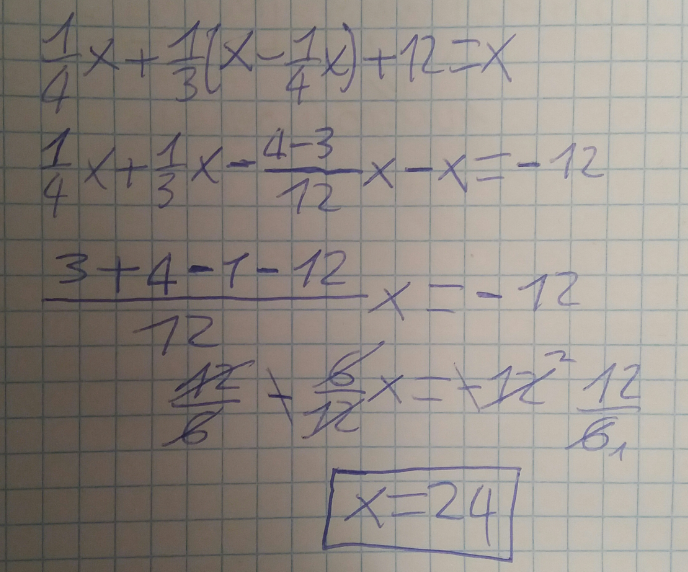 1/4 x + 1/3 (x - 1/4 x) + 12 = x
1/4 x + 1/3 x - (4-3)/12 x - x = -12
(3 + 4 - 1 - 12)/12 x = - 12
12/6 - 6/12 x = -12² 12/6₁
x = 24